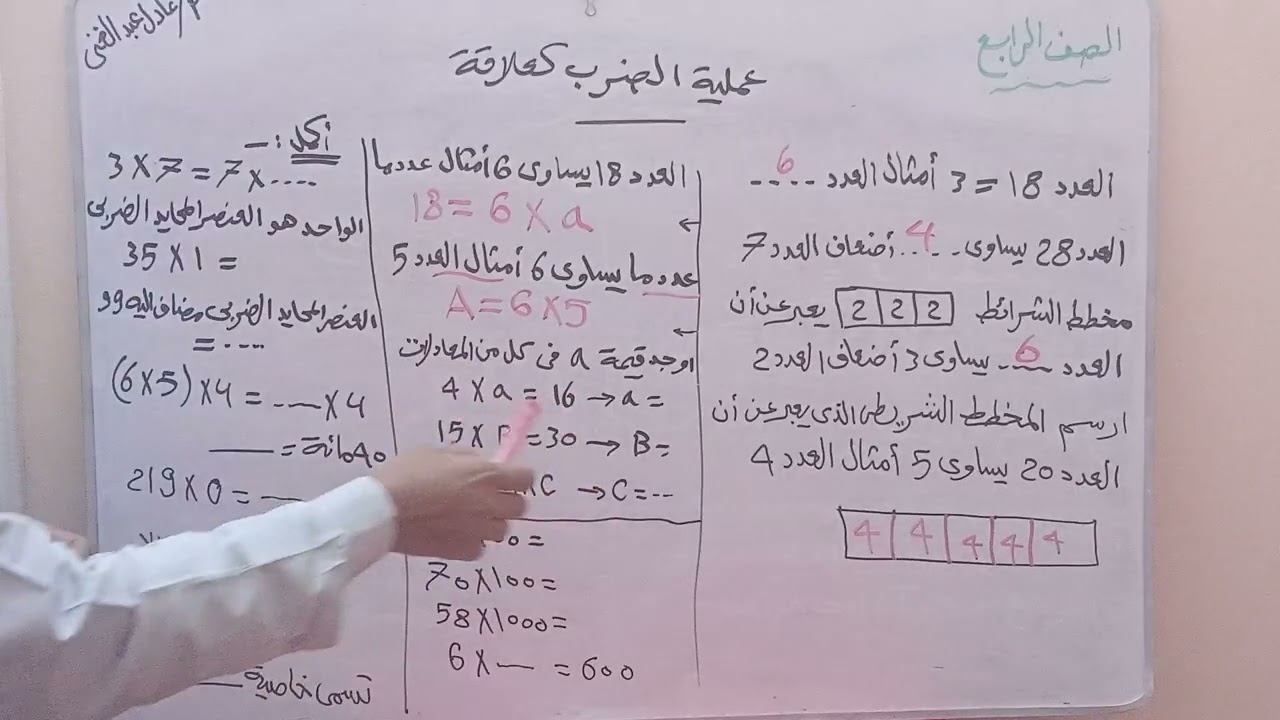 الصف الرابع
م/عادل عبد الغنى
عملية الضرب كعلاقة
العدد 18 = 3 أمثال العدد ..6..
العدد 28 يساوى ..4.. أضعاف العدد 7
مخطط الشرائط 2 2 2 يعبر عن أن
العدد ..6.. يساوى 3 أضعاف العدد 2
ارسم المخطط الشريطى الذى يعبر عن أن
العدد 20 يساوى 5 أمثال العدد 4
4 4 4 4 4
العدد 18 يساوى 6 أمثال عدد ما
18 = 6 X a
عدد ما يساوى 6 أمثال العدد 5
A = 6 X 5
اوجد قيمة a فى كل من المعادلات
4 X a = 16 → a =
15 X = 30 → B =
C → C = --
0 =
70 X 100 =
58 X 1000 =
6 X — = 600
أكمل : —
3 X 7 = 7 X ....
الواحد هو العنصر المحايد الضربى
35 X 1 =
العنصر المحايد الضربى مضاف إليه 99
= ....
(6 X 5) X 4 = — X 4
40 مائة = ——
219 X 0 = —
تسمى خاصية ——